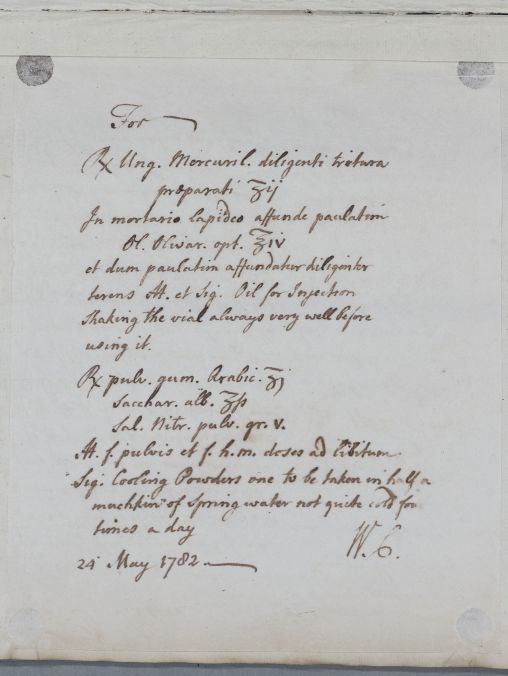 For
℞ Ung. Mercuril. diligenti tritura
præparati ʒij
In mortario lapideo affunde paulatim
Ol. Olivar. opt. ʒiv
et dum paulatim affundatur diligenter
terens M. et Sig. Oil for Injection
Shaking the vial always very well before
using it.
℞ pulv. gum. Arabic. ʒj
Sacchar. alb. ʒſs
Sal. Nitr. pulv. gr. v.
M. f. pulvis et f. h. m. doses ad libitum
Sig. Cooling Powders one to be taken in half a
muchkin of Spring water not quite cold four
times a day
W. C.
24 May 1782